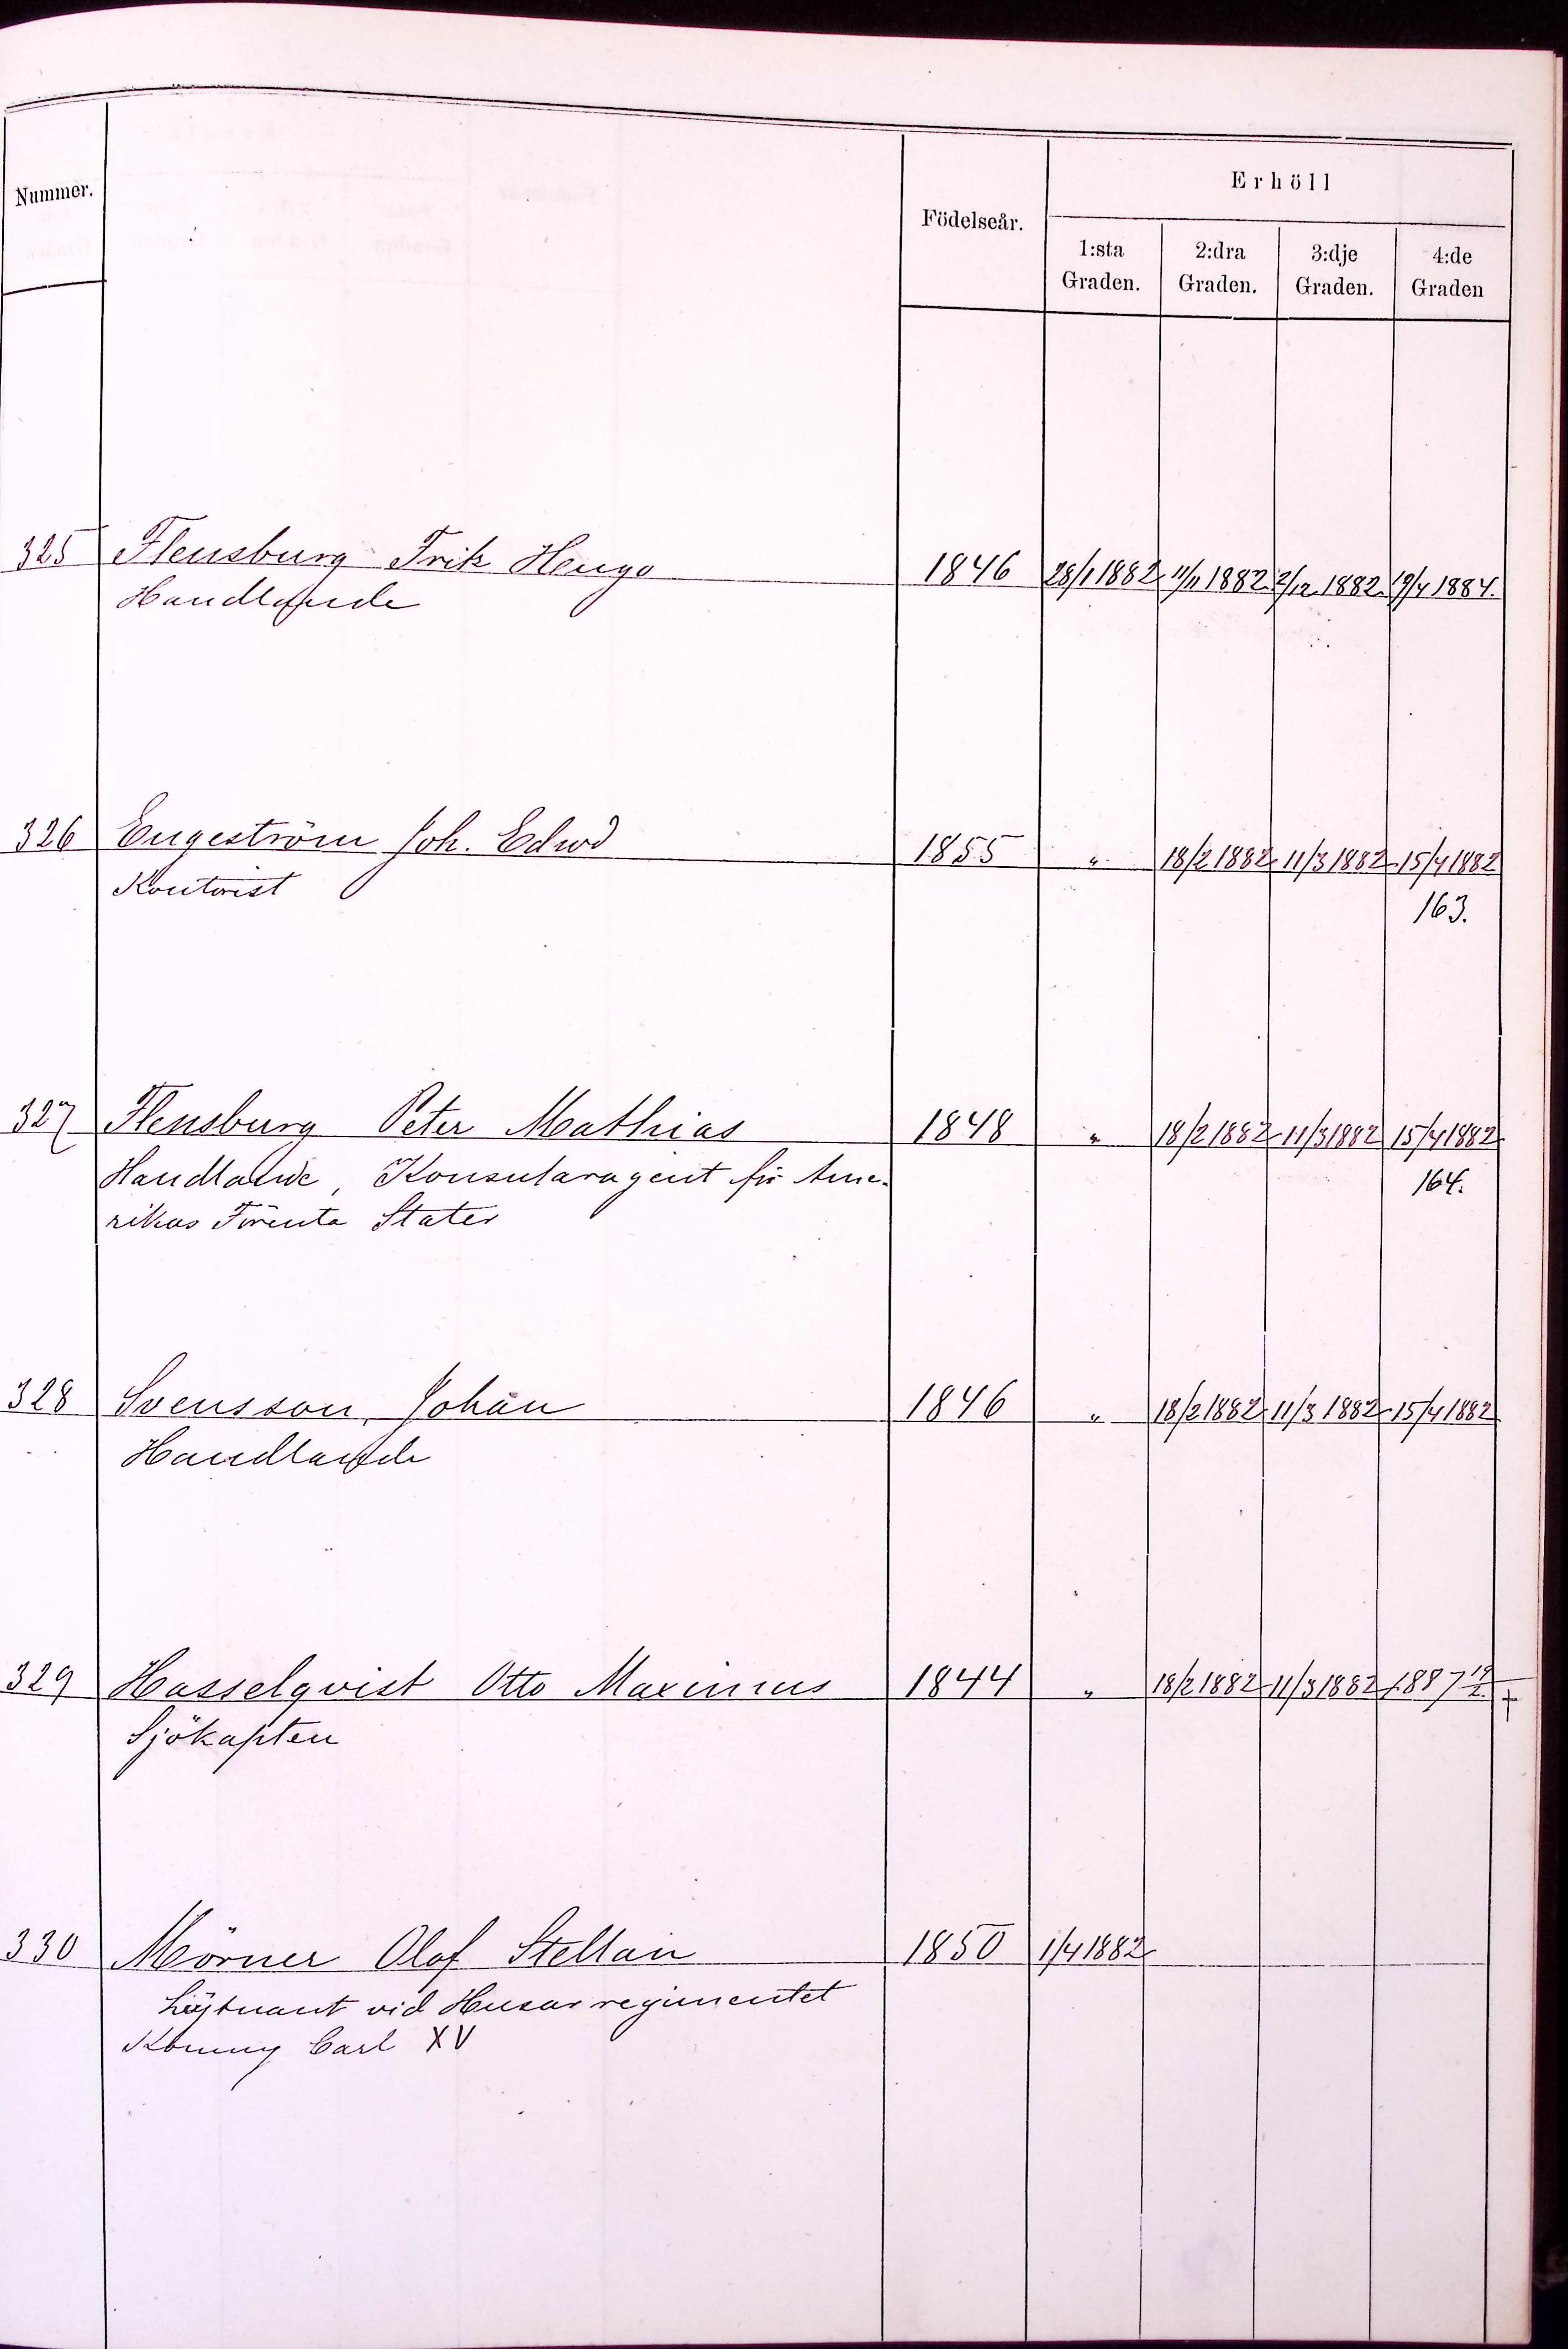 Nummer.
Födelseår.
Erhöll
1:sta Graden.
2:dra Graden.
3:dje Graden.
4:de Graden
325 Flensburg Frik Hugo 1846 28/1 1882 11/11 1882 2/12 1882 19/4 1884.
Handlande
326 Engeström Joh. Edwd 1855 " 18/2 1882 11/3 1882 15/4 1882
Kontorist 163.
327 Flensburg Peter Mathias 1848 " 18/2 1882 11/3 1882 15/4 1882
Handlande, Konsularagent för Ame- 164.
rikas Förenta Stater
328 Svensson, Johan 1846 " 18/2 1882 11/3 1882 15/4 1882
Handlande
329 Hasselqvist Otto Maximus 1844 " 18/2 1882 11/3 1882 1887 19/2 †
Sjökapten
330 Mörner Olof Stellan 1850 1/4 1882
Löjtnant vid Husarregimentet
Konung Carl XV